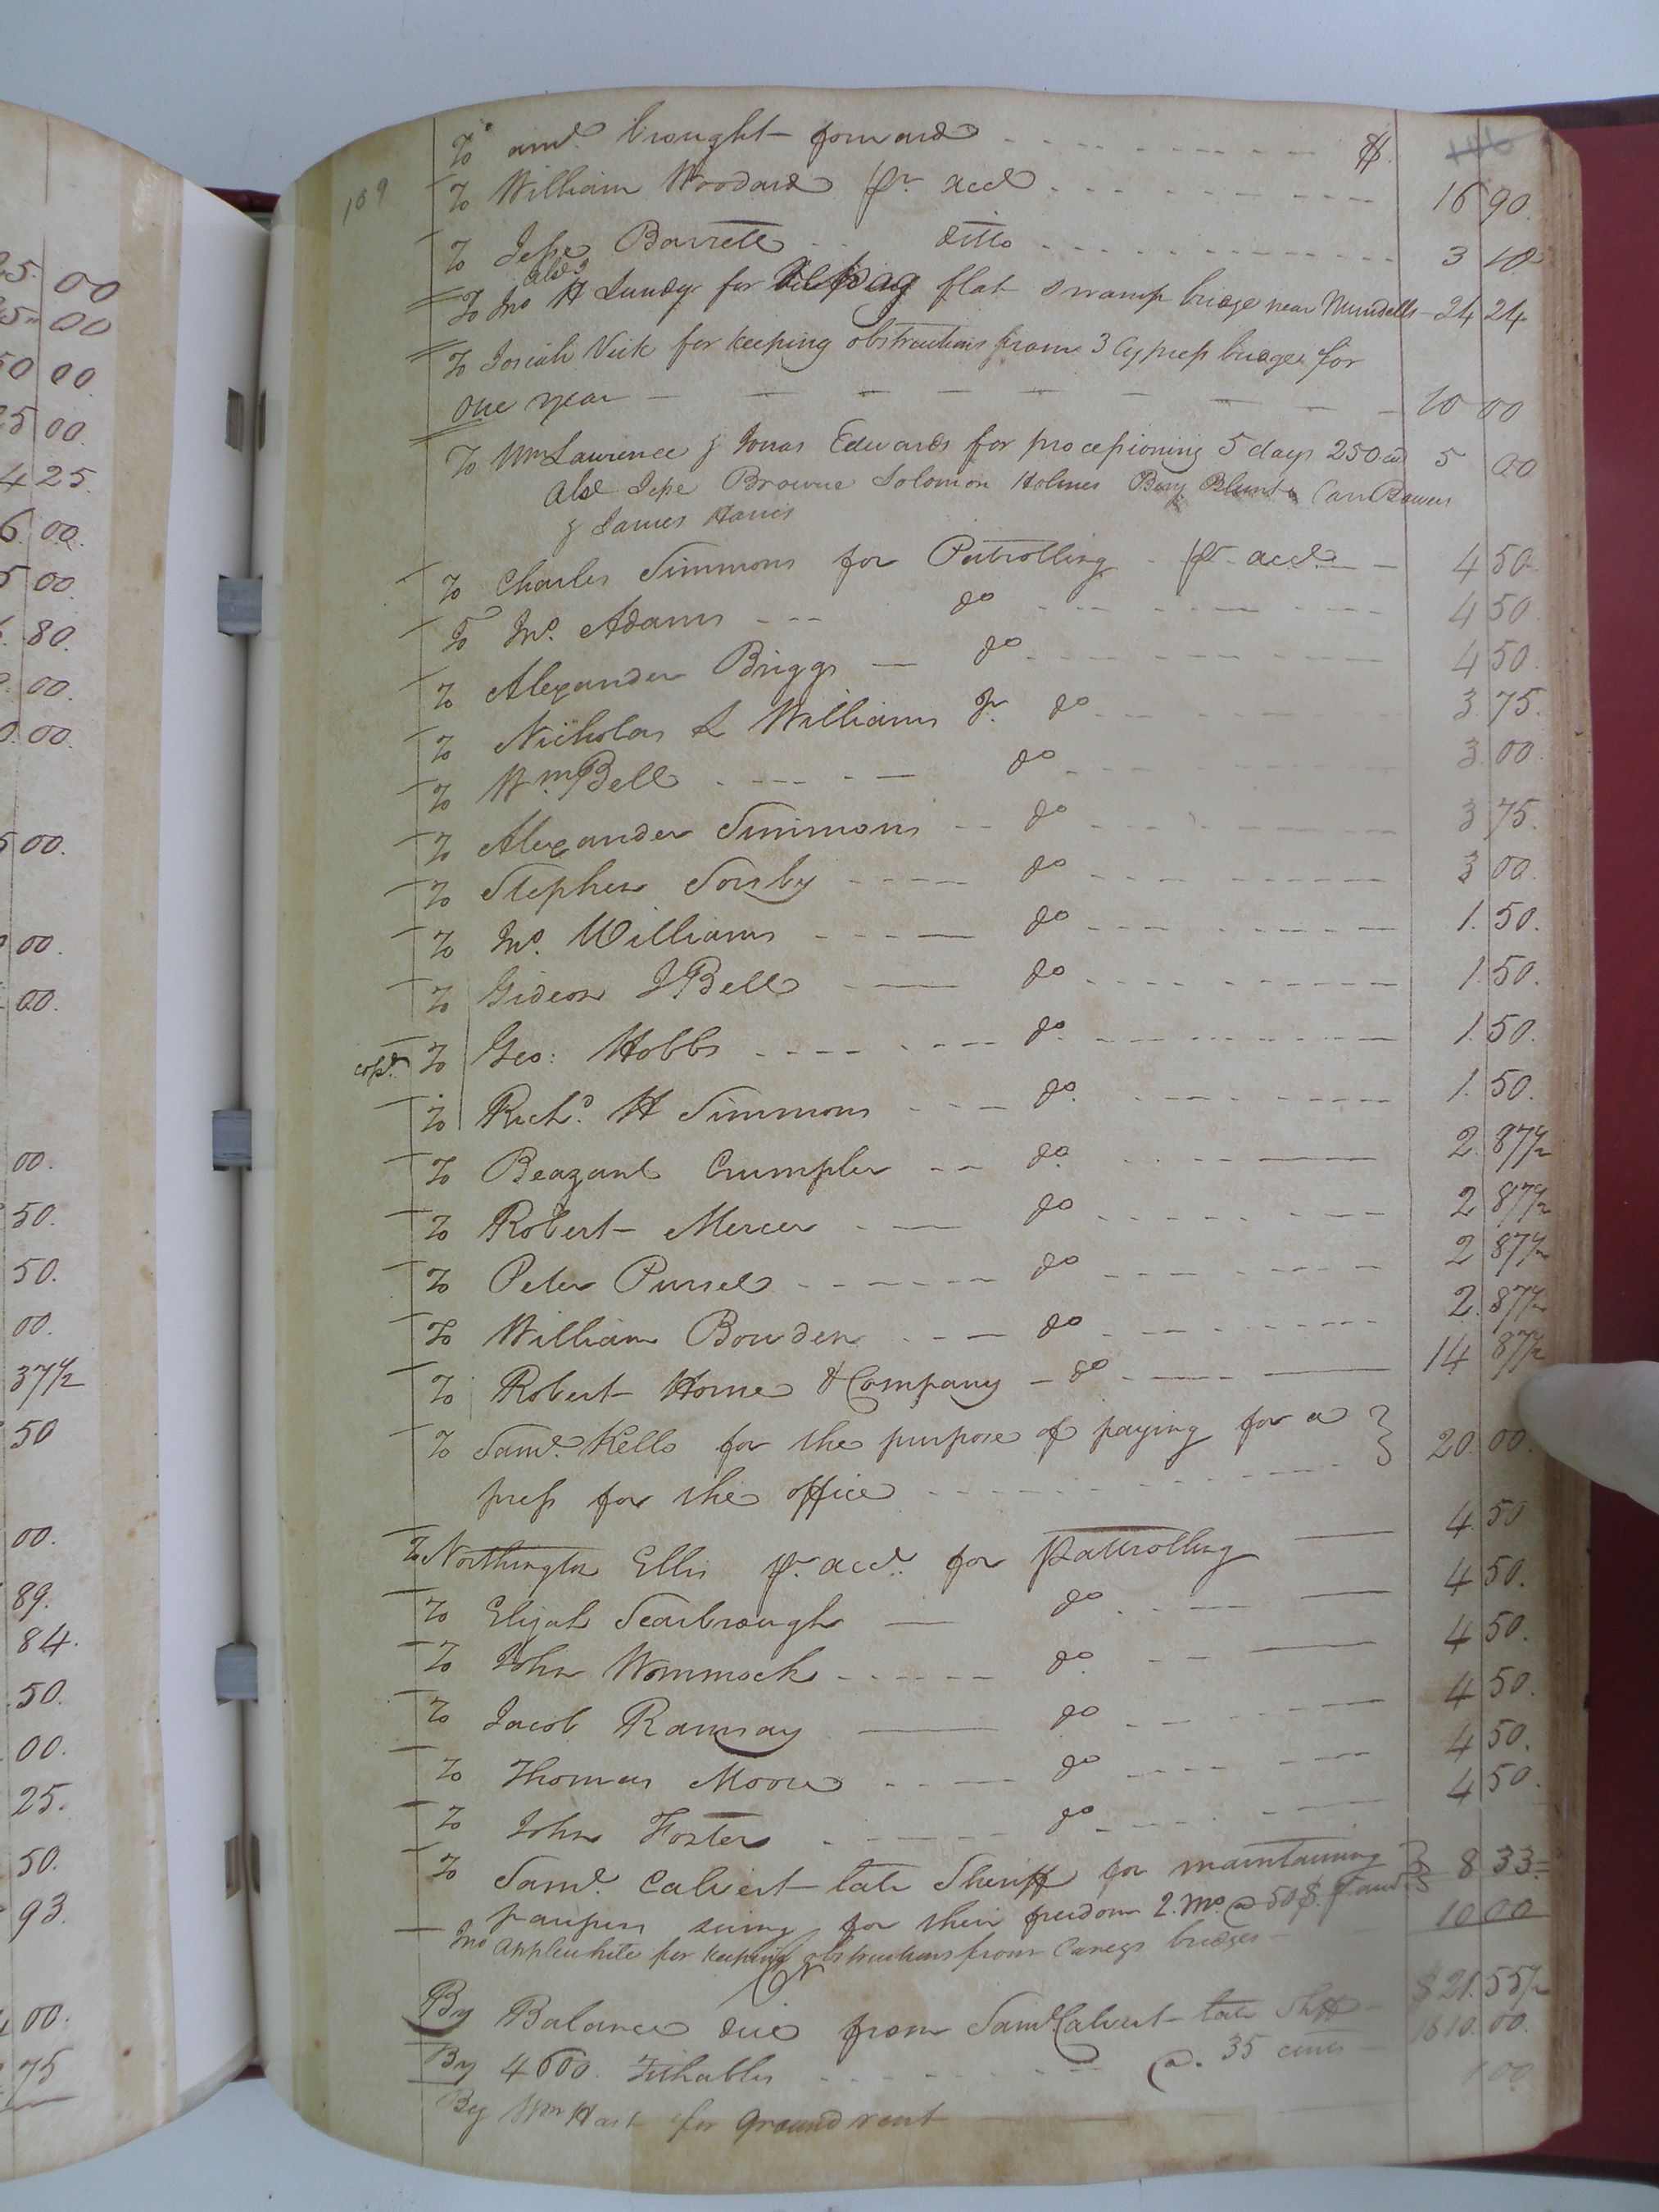 25. 00
25 00
50 00
25 00.
4 25.
6. 00.
5 00.
80.
00.
0. 00.
5 00.
00.
00.
00.
50.
50.
00.
37 1/2
50
00.
89.
84.
50.
00.
25.
50.
93.
00.
75
159
To amt. brought forward $.
To William Woodard pr. acct 16 90.
To Jesse Barrett ditto 3 10
also
To Jno H Lundy for flat swamp bridge near Mundells 24 24
To Josiah Vick for keeping obstructions from 3 Cypress bridges for
one year 10 00
To Wm Lawrence & Jonas Edwards for processioning 5 days 250 ea 5 00
also Jesse Browne Solomon Holmes Benj Blunt Carr Bowers
& James Harris
To Charles Simmons for Patrolling pr acct. 4 50.
To Jno. Adams do 4 50.
To Alexander Briggs do 4 50.
To Nicholas L Williams Jr. do 3. 75.
To Wm. Bell do 3. 00.
To Alexander Simmons do 3 75.
To Stephen Sorsby do 3 00.
To Jno. Williams do 1. 50.
To Gideon J Bell do 1. 50.
copd. To Geo: Hobbs do. 1. 50.
To Richd. H Simmons do. 1. 50.
To Beazant Crumpler do. 2. 87 1/2
To Robert Mercer do 2 87 1/2
To Peter Pursel do 2 87 1/2
To William Bowden do 2. 87 1/2
To Robert Horne & Company do 14 87 1/2
To Saml. Kello for the purpose of paying for a
press for the office 20. 00.
To Northington Ellis pr. acct. for Pattrolling 4. 50
To Elijah Scarbrough do 4 50.
To John Wommack do. 4 50.
To Jacob Ramsay do 4 50.
To Thomas Moore do 4 50.
To John Foster do 4 50.
To Saml. Calvert late Sheriff for maintaining
paupers suing for their freedom 2. Mo. @ 50$. 8 33
Jno Applewhite for keeping obstructions from Careys bridges 10 00
By Balance due from Saml Calvert late Shff $ 21. 55 1/2
By 4600. Tithables @. 35 cents 1610. 00.
By Wm Hart for ground rent 1 00